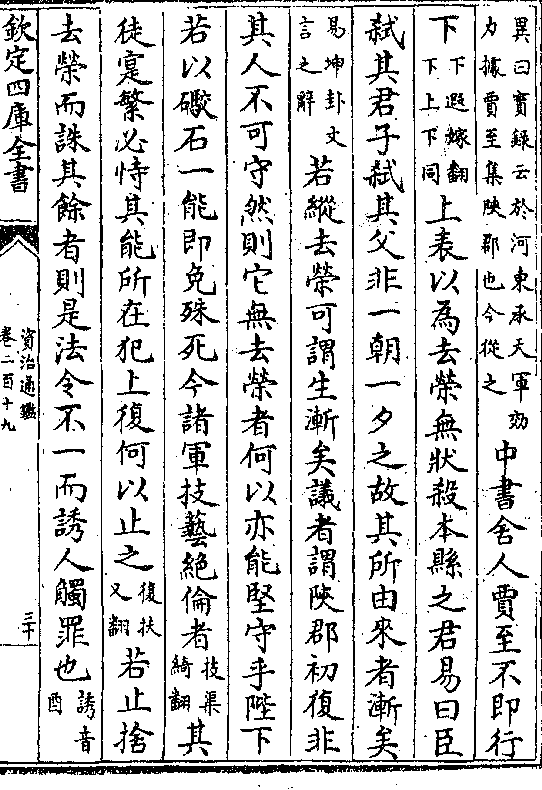 異曰實錄云於河東承天軍効
力據賈至集陜郡也今從之
中書舍人賈至不即行
下
下遐嫁翻
下上下同
上表以為去榮無狀殺本縣之君易曰臣
弑其君子弑其父非一朝一夕之故其所由來者漸矣
易坤卦文
言之辭
若縱去榮可謂生漸矣議者謂陜郡初復非
其人不可守然則它無去榮者何以亦能堅守乎陛下
若以礮石一能即免殊死今諸軍技藝絶倫者
技渠
綺翻
其
徒寔繁必恃其能所在犯上復何以止之
復扶
又翻
若止捨
去榮而誅其餘者則是法令不一而誘人觸罪也
誘音
酉
欽定四庫全書
資治通鑑
卷二百十九
三十